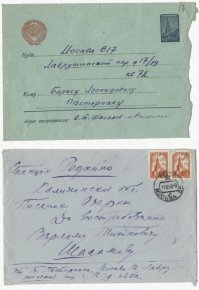 Куда Москва В 17
Лаврушинский пер. д 17/19
кв 72
Кому Борису Леонидовичу
Пастернаку
Адрес отправителя: В.Т. Шаламов
Станция Редкино
Калининская обл.
Поселок Озерки
До востребования
Варламу Тихоновичу
Шаламову
Б. Пастернака Москва 17
МОСКВА